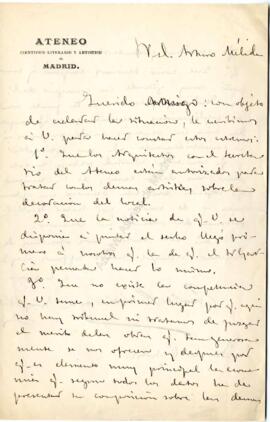 ATENEO
CIENTÍFICO LITERARIO Y ARTÍSTICO
DE
MADRID.
Sr. D. Arturo Mélida
Querido amigo: con objeto
de aclarar la situación, le escribimos
á V. para hacer constar estos extremos:
1º. Que los Arquitectos con el Secreta-
rio del Ateneo estan autorizados para
tratar con los demas artistas sobre la
decoracion del local.
2º. Que la noticia de qe. V. se
disponia á pintar el techo llegó pri-
mero á nosotros qe. la de qe. el
pensaba hacer lo mismo.
3º. Que no existe la competencia
qe. V. teme, en primer lugar por qe. aquí
no hay tribunal ni tratamos de juzgar
el merito de las obras qe. tan generosa-
mente se nos ofrecen y despues por
qe. es elemento muy principal la econo-
mía qe. segun todos los datos ha de
presentar su composición sobre las demas